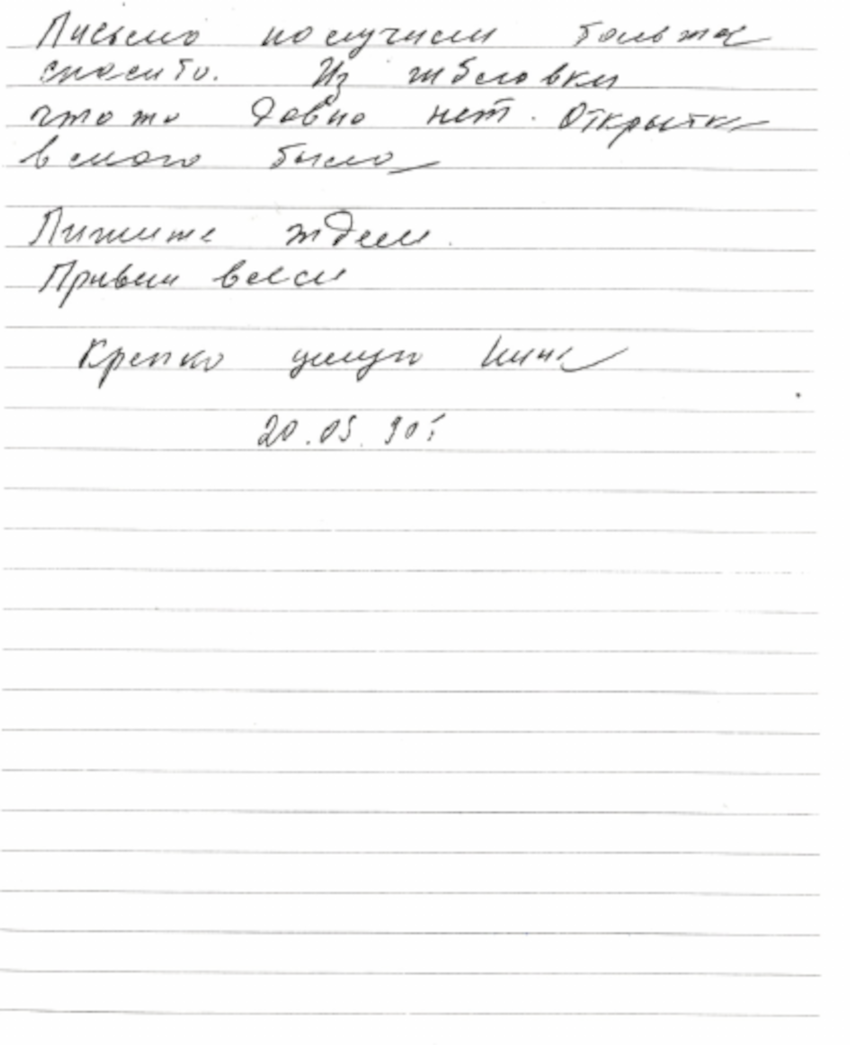 Письмо получили большое
спасибо. Из
что то давно нет. Открытка
было
Пишите ждем.
Привет всем
Крепко целую Нина
20.05.90г